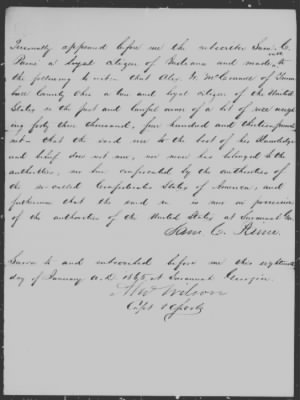 Personally appeared before me the subscriber Sam. C.
a loyal citizen of Indiana and made oath to
the following to wit - that Alex. W. McConnell of
bull County Ohio a true and loyal citizen of the United
States is the just and lawful owner of a lot of rice weigh
ing forty three thousand, four hundred and thirteen pounds
with - that the said rice to the best of his Knowledge
and belief does not now, nor never has belonged to the
authorities, nor been confiscated by the authorities of
the so-called Confederate States of America, and
furthermore that the said rice is now in possession
of the authorities of the United States at Savannah Ga.
Sam C.
Sworn to and subscribed before me this eighteenth
day of January A.D. 1865 at Savannah Georgia.
Wilson
Capt &